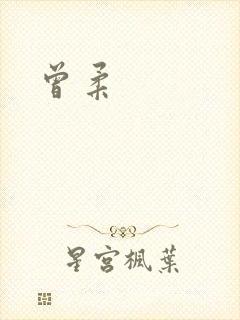 曾柔
星宫枫葉